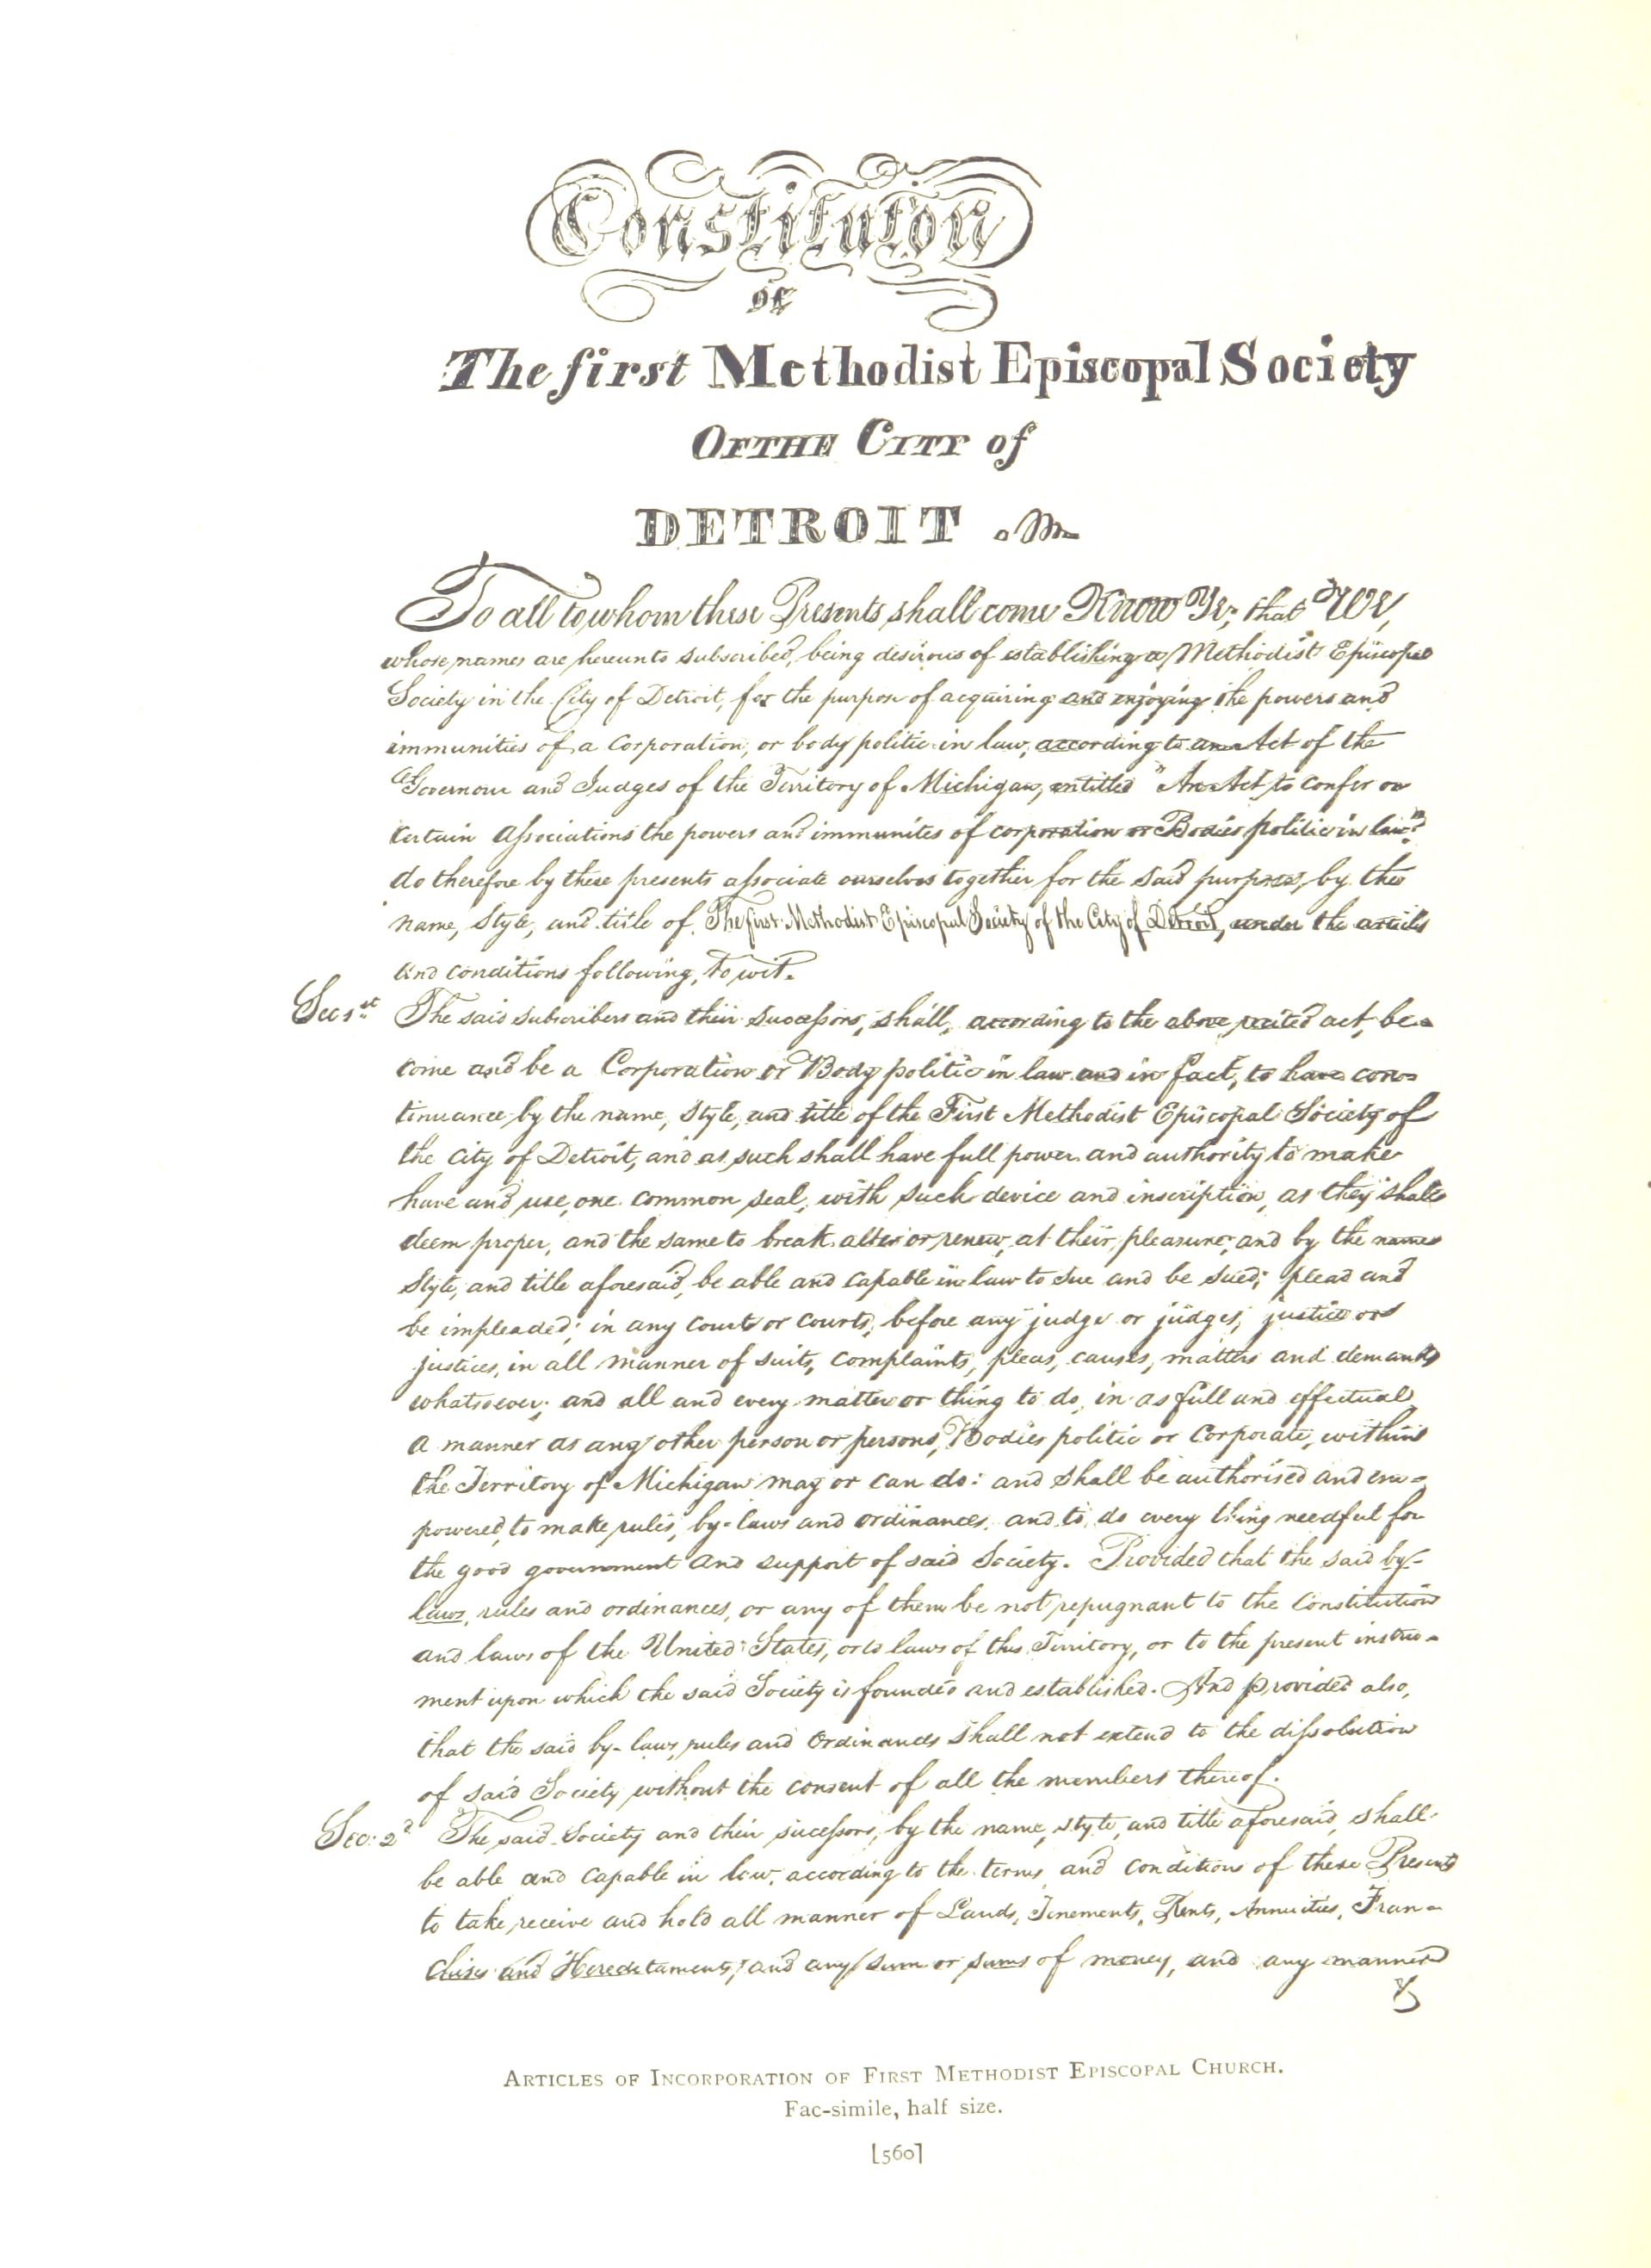 Constitution
of
The first Methodist Episcopal Society
OF THE CITY of
DETROIT
To all to whom these Presents shall come Know Ye, that We,
whose names are hereunto subscribed, being desirous of establishing a Methodist Episcopal
Society in the City of Detroit, for the purpose of acquiring and enjoying the powers and
immunities of a Corporation, or body politic in law, according to an Act of the
Governour and Judges of the Territory of Michigan, entitled "An Act to confer on
certain Associations the powers and immunites of corporation or Bodies politic in law"
do therefore by these presents associate ourselves together for the said purposes, by the
name, Style, and title of The first Methodist Episcopal Society of the City of Detroit, under the articles
and conditions following, To wit.
Sec 1st The said subscribers and their Successors, shall, according to the above recited act, be-
come and be a Corporation or Body politic in law and in fact, to have con-
tinuance by the name, Style, and title of the First Methodist Episcopal Society of
the City of Detroit, and as such shall have full power and authority to make
have and use, one common seal, with such device and inscription, as they shall
deem proper, and the same to break alter or renew, at their pleasure, and by the name
Style, and title aforesaid, be able and capable in law to sue and be sued; plead and
be impleaded; in any court or courts, before any judge or judges, justice or
justices, in all manner of suits, complaints, pleas, causes, matters and demands
whatsoever; and all and every matter or thing to do, in as full and effectual
a manner as any other person or persons, Bodies politic or Corporate, within
the Territory of Michigan may or can do: and shall be authorised and em-
powered, to make rules, by-laws and ordinances, and to do every thing needful for
the good government and support of said Society. Provided that the said by-
laws, rules and ordinances, or any of them be not repugnant to the Constitution
and laws of the United States, or to laws of this Territory, or to the present instru-
ment upon which the said Society is founded and established. And provided also,
that the said by-laws, rules and Ordinances shall not extend to the dissolution
of said Society without the consent of all the members thereof.
Sec: 2d The said Society and their sucessors, by the name, style, and title aforesaid, shall
be able and capable in law, according to the terms and conditions of these Presents
to take, receive and hold all manner of Lands, Tenements, Rents, Annuities, Fran-
chises and Hereditaments, and any sum or sums of money, and any manner
ARTICLES OF INCORPORATION OF FIRST METHODIST EPISCOPAL CHURCH.
Fac-simile, half size.
[560]